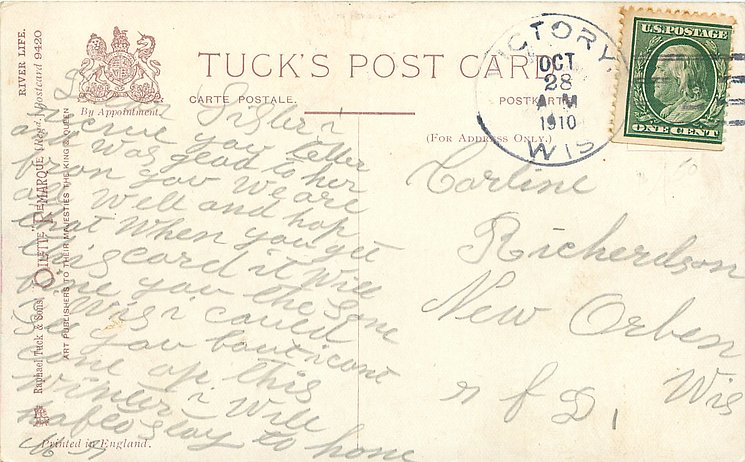 TUCK'S POST CARD
By Appointment.
CARTE POSTALE.
POSTKARTE
(FOR ADDRESS ONLY.)
VICTORY,
OCT
28
A M
1910
WIS
U.S. POSTAGE
ONE CENT
RIVER LIFE.
"OILETTE" REMARQUE Postcard 9420
Raphael Tuck & Sons'
ART PUBLISHERS TO THEIR MAJESTIES THE KING & QUEEN
Printed in England.
Dear Sister i
recive you letter
and was glad to her
from you we are
all well and hop
that when you get
this card it will
fine you the same
i wis i could
See you bout i cant
come up this
winter i will
hafto stay to home
Carline
Richerdson
New Orben
Wis
r f D 1